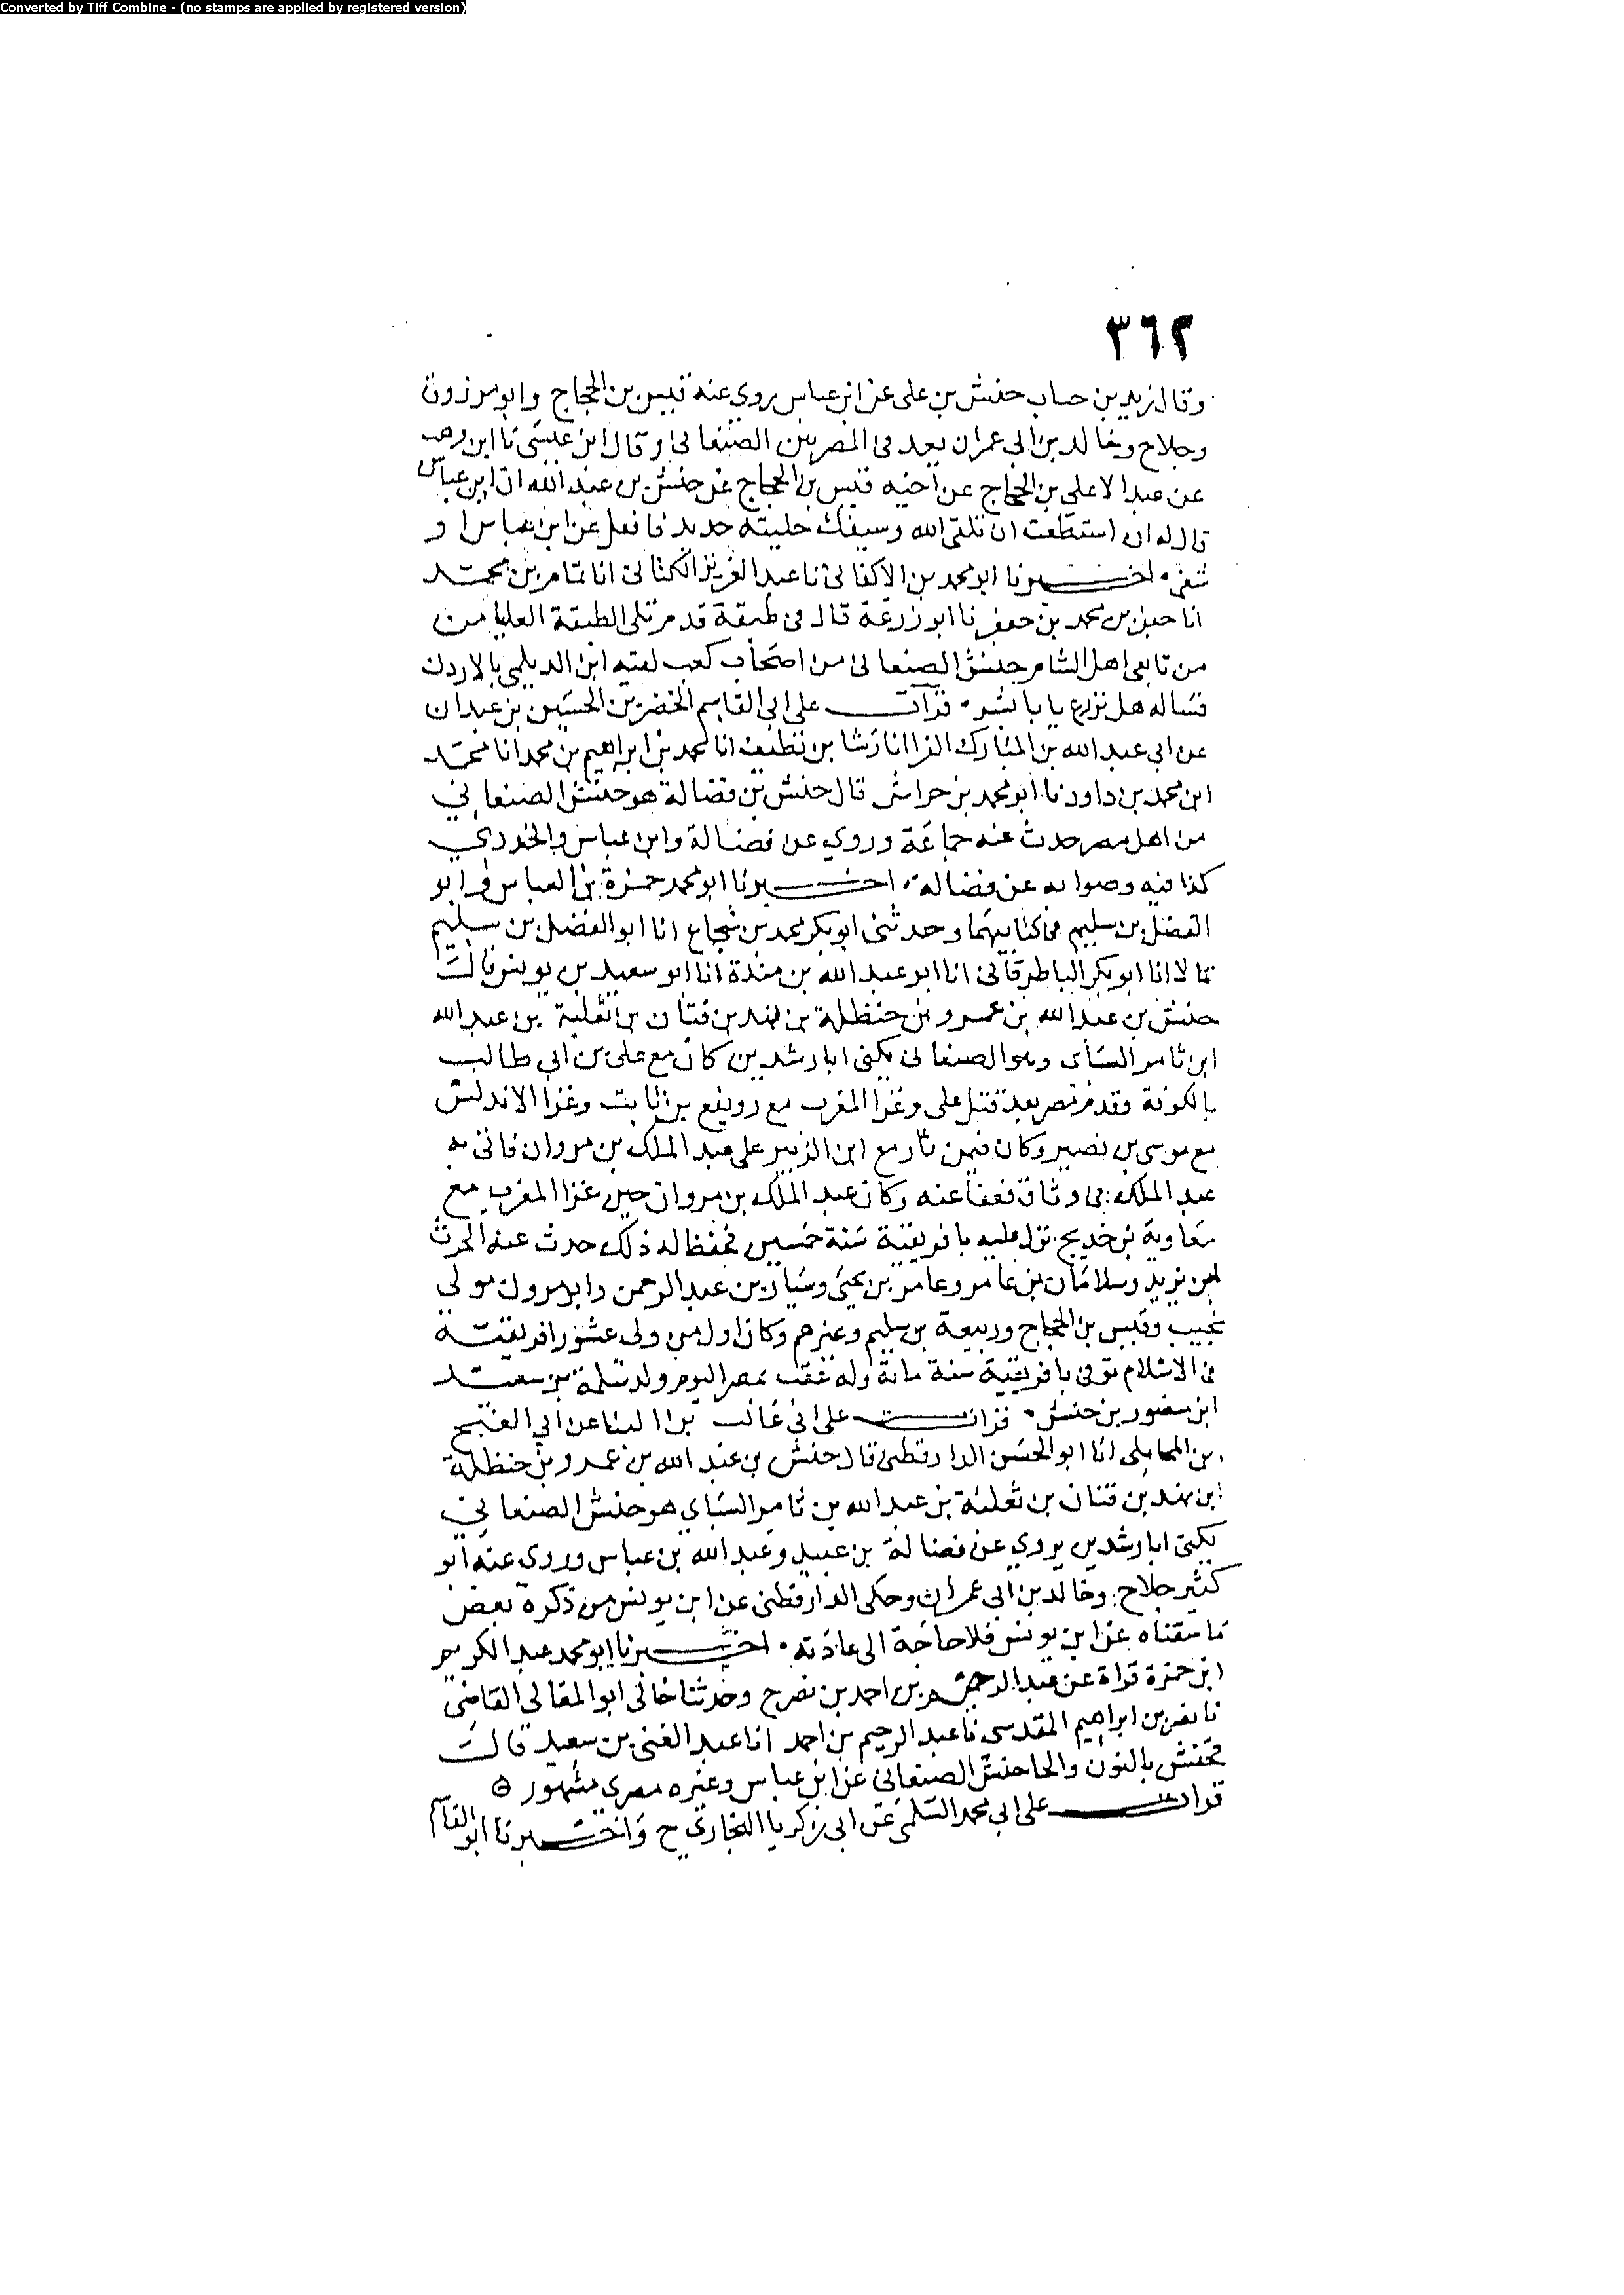 Converted by Tiff Combine - (no stamps are applied by registered version)
٣٦٢
وقال زيد بن حباب حنش بن علي عن ابن عباس روي عنه قيس بن الحجاج وابو مرزوق
وجلاح وخالد بن ابي عمران يعد في المصريين الصنعاني وقال ابن عيسى نا ابن وهب
عن عبد الاعلي بن الحجاج عن اخيه قيس بن الحجاج عن حنش بن عبد الله ان ابن عباس
قال له ان استطعت ان تلقى الله وسيفك حليته حديد فافعل عن ابن عباس و
اخبرنا ابو محمد بن الاكفاني نا عبد العزيز الكتاني انا تمام بن محمد
انا جعفر بن محمد بن جعفر نا ابو زرعة قال في طبقة قدم تلي الطبقة العليا من
من تابعي اهل الشام حنش الصنعاني من اصحاب كعب لقيه ابن الديلمي بالاردن
فساله هل تزرع يا با قرات علي ابي القاسم الخضر بن الحسين بن عبدان
عن ابي عبد الله بن المبارك الفرا انا رشا بن نظيف انا محمد بن ابراهيم بن محمد انا محمد
ابن محمد بن داود نا ابو محمد بن خراش قال حنش بن فضالة هو حنش الصنعاني
من اهل مصر حدث عنه جماعة وروي عن فضالة وابن عباس والخدري
كذا فيه وصوابه عن فضالة اخبرنا ابو محمد حمزة بن العباس وابو
الفضل بن سليم في كتابيهما وحدثني ابو بكر محمد بن شجاع انا ابو الفضل بن سليم
قالا انا ابو بكر الباطرقاني انا ابو عبد الله بن مندة انا ابو سعيد بن يونس قال
حنش بن عبد الله بن عمرو بن حنظلة بن نهد بن قنان بن ثعلبة بن عبد الله
ابن ثامر السبأى وهو الصنعاني يكنى ابا رشدين كان مع علي بن ابي طالب
بالكوفة وقدم مصر بعد قتل علي وغزا المغرب مع رويفع بن ثابت وغزا الاندلس
مع موسى بن نصير وكان فيمن ثار مع ابن الزبير على عبد الملك بن مروان فاتي به
عبد الملك في وثاق فعفا عنه وكان عبد الملك بن مروان حين غزا المغرب مع
معاوية بن خديج نزل عليه بافريقية سنة خمسين فحفظ له ذلك حدث عنه الحرث
بن يزيد وسلامان بن عامر وعامر بن يحيى وسيار بن عبد الرحمن وابو مرزوق مولي
تجيب وقيس بن الحجاج وربيعة بن سليم وغيرهم وكان اول من ولي عشور افريقية
في الاسلام توفي بافريقية سنة مائة وله عقب بمصر اليوم ولد سلمة بن سعيد
ابن منصور بن حنش قرات على ابي غالب بن البنا عن ابي الفتح
بن المحاملي انا ابو الحسن الدارقطني قال حنش بن عبد الله بن عمرو بن حنظلة
بن نهد بن قنان بن ثعلبة بن عبد الله بن ثامر السباي هو حنش الصنعاني
يكنى ابا رشدين يروي عن فضالة بن عبيد وعبد الله بن عباس وروى عنه ابو
كثير جلاح وخالد بن ابي عمران وحكى الدارقطني عن ابن يونس من ذكره بعض
ما سقناه عن ابن يونس فلا حاجة الى عادته اخبرنا ابو محمد عبد الكريم
ابن حمزة قراة عن عبد الرحيم بن احمد بن نصر ح وحدثنا خالي ابو المعالي القاضي
نا نصر بن ابراهيم المقدسي نا عبد الرحيم بن احمد انا عبد الغني بن سعيد قال
حنش بالنون والحا حنش الصنعاني عن ابن عباس وغيره مصري مشهور
قرات على ابي محمد السلمي عن ابي زكريا البخاري ح واخبرنا ابو القاسم